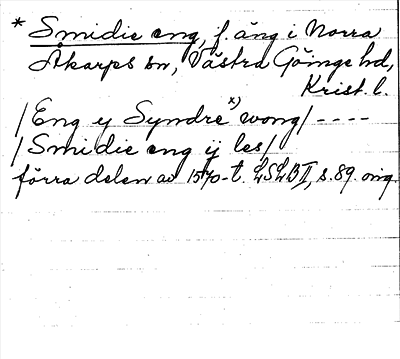 * Smidie eng, f. äng i Norra
Åkarps sn, Västra Göinge hd,
Krist. l.
/Eng y Syndre x) wong/ - - - -
/Smidie eng ij les/
förra delen av 1570-t. LSLB II, s. 89. orig.